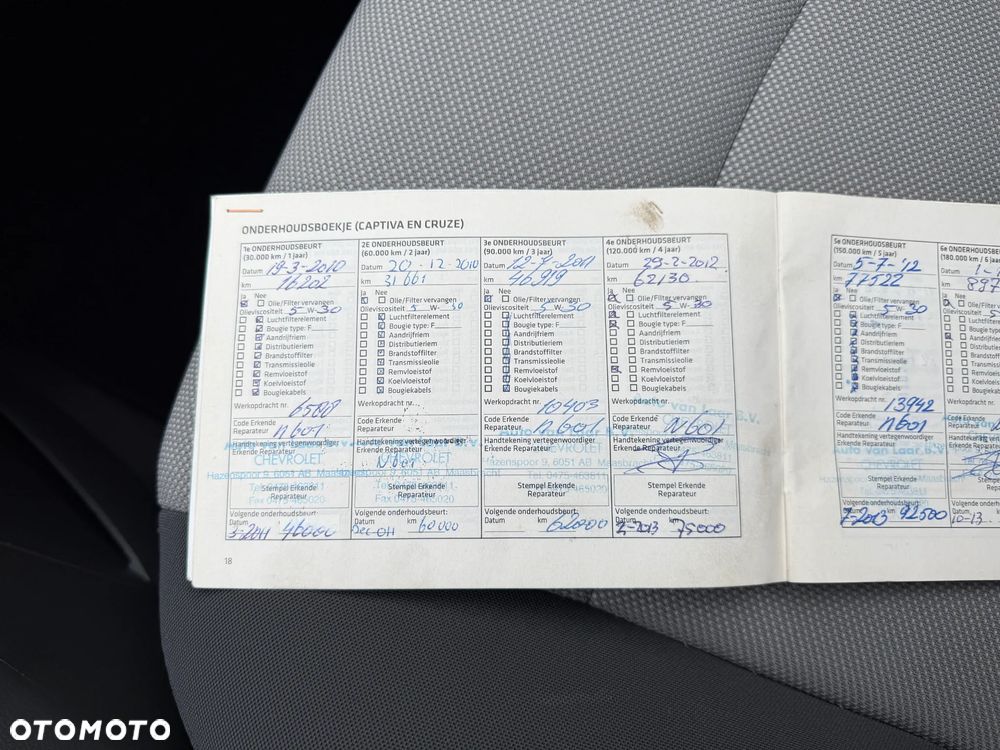 ONDERHOUDSBOEKJE (CAPTIVA EN CRUZE)
1e ONDERHOUDSBEURT
(30.000 km / 1 jaar)
Datum 19-3-2010
km 16202
Ja Nee
Olie/Filter vervangen
Olieviscositeit 5 W-30
Luchtfilterelement
Bougie type: F
Aandrijfriem
Distributieriem
Brandstoffilter
Transmissieolie
Remvloeistof
Koelvloeistof
Bougiekabels
Werkopdracht nr.
Code Erkende
Reparateur N601
Handtekening vertegenwoordiger
Erkende Reparateur
CHEVROLET
Hazenspoor 9, 6051 AB Maasbracht
Fax 0475-465020
Stempel Erkende
Reparateur
Volgende onderhoudsbeurt:
Datum km
46000
2E ONDERHOUDSBEURT
(60.000 km / 2 jaar)
Datum 20-12-2010
km 31661
Ja Nee
Olie/Filter vervangen
Olieviscositeit 5 W-30
Luchtfilterelement
Bougie type: F
Aandrijfriem
Distributieriem
Brandstoffilter
Transmissieolie
Remvloeistof
Koelvloeistof
Bougiekabels
Werkopdracht nr.
Code Erkende
Reparateur
Handtekening vertegenwoordiger
Erkende Reparateur
N601
CHEVROLET
Stempel Erkende
Reparateur
Fax 0475-465020
Volgende onderhoudsbeurt:
Datum km 60000
3e ONDERHOUDSBEURT
(90.000 km / 3 jaar)
Datum 12-7-2011
km 46919
Ja Nee
Olie/Filter vervangen
Olieviscositeit 5 W-30
Luchtfilterelement
Bougie type: F
Aandrijfriem
Distributieriem
Brandstoffilter
Transmissieolie
Remvloeistof
Koelvloeistof
Bougiekabels
Werkopdracht nr. 10403
Code Erkende
Reparateur N601
Handtekening vertegenwoordiger
Erkende Reparateur
CHEVROLET
Hazenspoor 9, 6051 AB Maasbracht
Stempel Erkende
Reparateur
Volgende onderhoudsbeurt:
Datum km 62000
4e ONDERHOUDSBEURT
(120.000 km / 4 jaar)
Datum 29-2-2012
km 62130
Ja Nee
Olie/Filter vervangen
Olieviscositeit 5 W-30
Luchtfilterelement
Bougie type: F
Aandrijfriem
Distributieriem
Brandstoffilter
Transmissieolie
Remvloeistof
Koelvloeistof
Bougiekabels
Werkopdracht nr.
van Laar B.V.
Code Erkende
Reparateur N601
Handtekening vertegenwoordiger
Erkende Reparateur
Stempel Erkende
Reparateur
Volgende onderhoudsbeurt:
Datum km
2-2013 75000
18
5e ONDERHOUDSBEURT
(150.000 km / 5 jaar)
Datum 5-7-'12
km 77522
Ja Nee
Olie/Filter vervangen
Olieviscositeit 5 W-30
Luchtfilterelement
Bougie type: F
Aandrijfriem
Distributieriem
Brandstoffilter
Transmissieolie
Remvloeistof
Koelvloeistof
Bougiekabels
Werkopdracht nr. 13942
Code Erkende
Reparateur N601
Handtekening vertegenwoordiger
Erkende Reparateur
Auto van Laar B.V.
CHEVROLET
Stempel Erkende
Reparateur
Volgende onderhoudsbeurt:
Datum km
7-2013 92500
6e ONDERHOUDS
(180.000 km / 6
Datum
km 897
Ja Nee
Olie
Olieviscositeit
Luch
Boug
Aand
Distr
Bran
Tran
Rem
Koel
Boug
Werkopdracht
Code Erkende
Reparateur
Handtekening
Erkende
Volgende onder
Datum
10-13
OTOMOTO